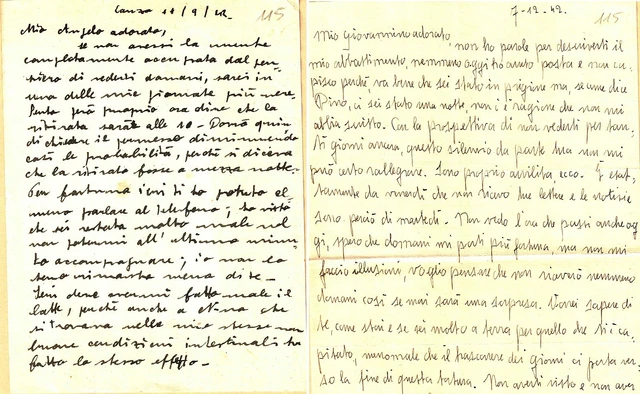 Lanzo 11/9/42.
115
Mio Angelo adorato,
se non avessi la mente
completamente occupata dal pen-
siero di vederti domani, sarei in
una delle mie giornate più nere.
Sento però proprio ora dire che la
ritirata sarà alle 10 - Dovrò quin-
di chiedere il permesso diminuendo
così le probabilità, perché si diceva
che la ritirata fosse a mezza notte.
Per fortuna ieri ti ho potuto al-
meno parlare al telefono; ho visto
che sei restata molto male nel
non potermi all'ultimo minu-
to accompagnare; io non lo
sono rimasto meno di te -
Ieri deve avermi fatto male il
latte, perché anche a che
si trovava nelle mie stesse non
buone condizioni intestinali ha
fatto lo stesso effetto -
7-12-42.
115
Mio Giovannino adorato,
non ho parole per descriverti il
mio abbattimento, nemmeno oggi ho avuto posta e non ca-
pisco perché, va bene che sei stato in prigione ma, se come dice
Pino, ci sei stato una notte, non c'è ragione che non mi
abbia scritto. Con la prospettiva di non vederti per tan-
ti giorni ancora, questo silenzio da parte tua non mi
può certo rallegrare. Sono proprio avvilita, ecco. È esat-
tamente da venerdì che non ricevo tue lettere e le notizie
sono perciò di martedì. Non vedo l'ora che passi anche og-
gi, spero che domani mi porti più fortuna, ma non mi
faccio illusioni, voglio pensare che non riceverò nemmeno
domani così se mai sarà una sorpresa. Vorrei sapere di
te, come stai e se sei molto a terra per quello che ti è ca-
pitato, meno male che il trascorrere dei giorni ci porta ver-
so la fine di questa tortura. Non averti visto e non aver